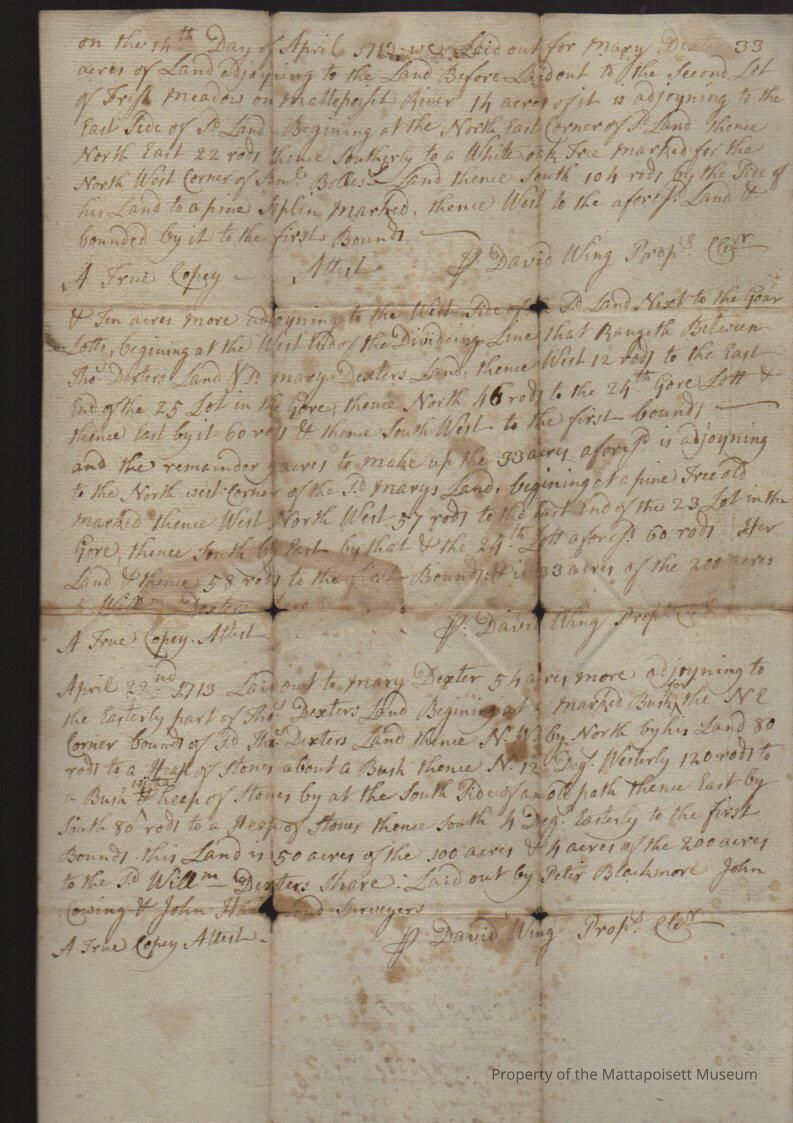 on the 14th Day of April 1713 we Laid out for Mary Dexter 33
acres of Land adjoyning to the Land Before Laid out to the Second Lot
of Fresh meadow on Mattepoisit River 14 acres of it is adjoyning to the
East Side of sd Land Begining at the North East Corner of sd Land thence
North East 22 rods thence Southerly to a White oak Tree marked for the
North West Corner of Land thence South 104 rods by the Side of
his Land to a pine Saplin Marked, thence West to the aforesd Land &
bounded by it to the first Bounds
A True Copey Attest P David Wing Props Clerr
& Ten acres more adjoyning to the West Side of sd Land Next to the Goar
Lotts, begining at the West End of the Divideing Line that Rangeth Between
Tho Dexters Land & sd mary Dexters Land, thence West 12 rods to the East
End of the 25 Lot in the Gore, thence North 46 rods to the 24th Gore Lott &
thence East by it 60 rods & thence South West to the first bounds
and the remainder acres to make up the 33 acres aforesd is adjoyning
to the North west Corner of the sd marys Land, begining at a pine Tree old
marked thence West North West 57 rods to the East End of the 23 Lot in the
Gore, thence South by East by that & the 24th Lott aforesd 60 rods Her
Land & thence 58 rods to the first Bounds: & is 33 acres of the 200 acres
Willm Dexters
A True Copey Attest P David Wing Props Cler
April 22nd 1713 Laid out to mary Dexter 54 acres more adjoyning to
the Easterly part of Tho Dexters Land Begining at a marked Bush for the N E
Corner bounds of sd Tho Dexters Land thence N. W. by North by his Land 80
rods to a Heap of Stones about a Bush thence N. 12 Deg. Westerly 120 rods to
a Bush & heep of Stones by at the South Side of an old path thence East by
South 80 rods to a Heap of Stones thence South 4 Deg. Easterly to the first
Bounds this Land is 50 acres of the 100 acres & 4 acres of the 200 acres
to the sd Willm Dexters Share: Laid out by Peter Blackmore John
Cowing & John Surveyers
A True Copey Attest P David Wing Props Clerr
Property of the Mattapoisett Museum